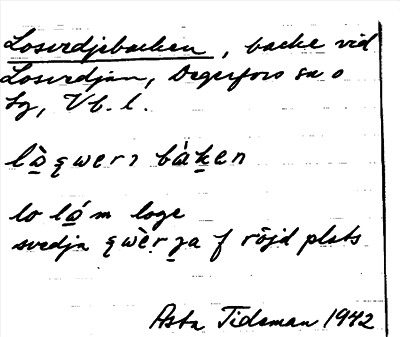 Losvedjebacken, backe vid
Losvedjan, Degerfors sn o
hg, Vb. l.
lò̲ʂwerɿ bàk̲en
lo lǻ̲ m loge
svedja ʂwèr̲ja f röjd plats
Asta Tideman 1942